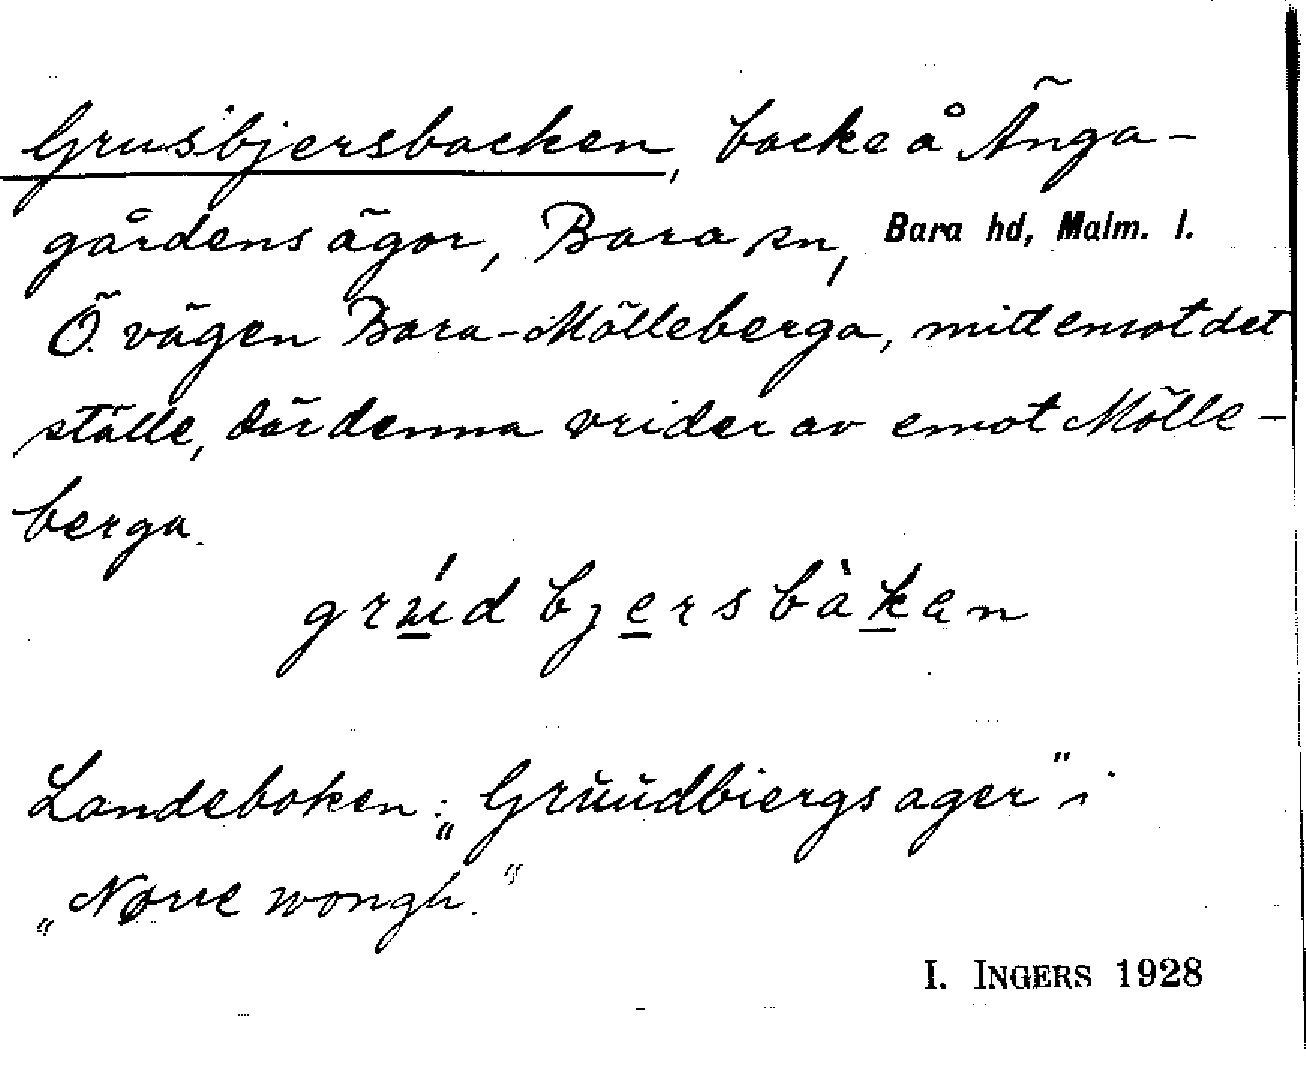 Grusbjersbacken, backe å Änga-
gårdens ägor, Bara sn, Bara hd, Malm. l.
Ö. vägen Bara-Mölleberga, mitt emot det
ställe, där denna vrider av emot Mölle-
berga.
grúdbjersbàkan
Landeboken: „Grŭŭdbiergs ager" i
„Nørre wongh."
I. INGERS 1928